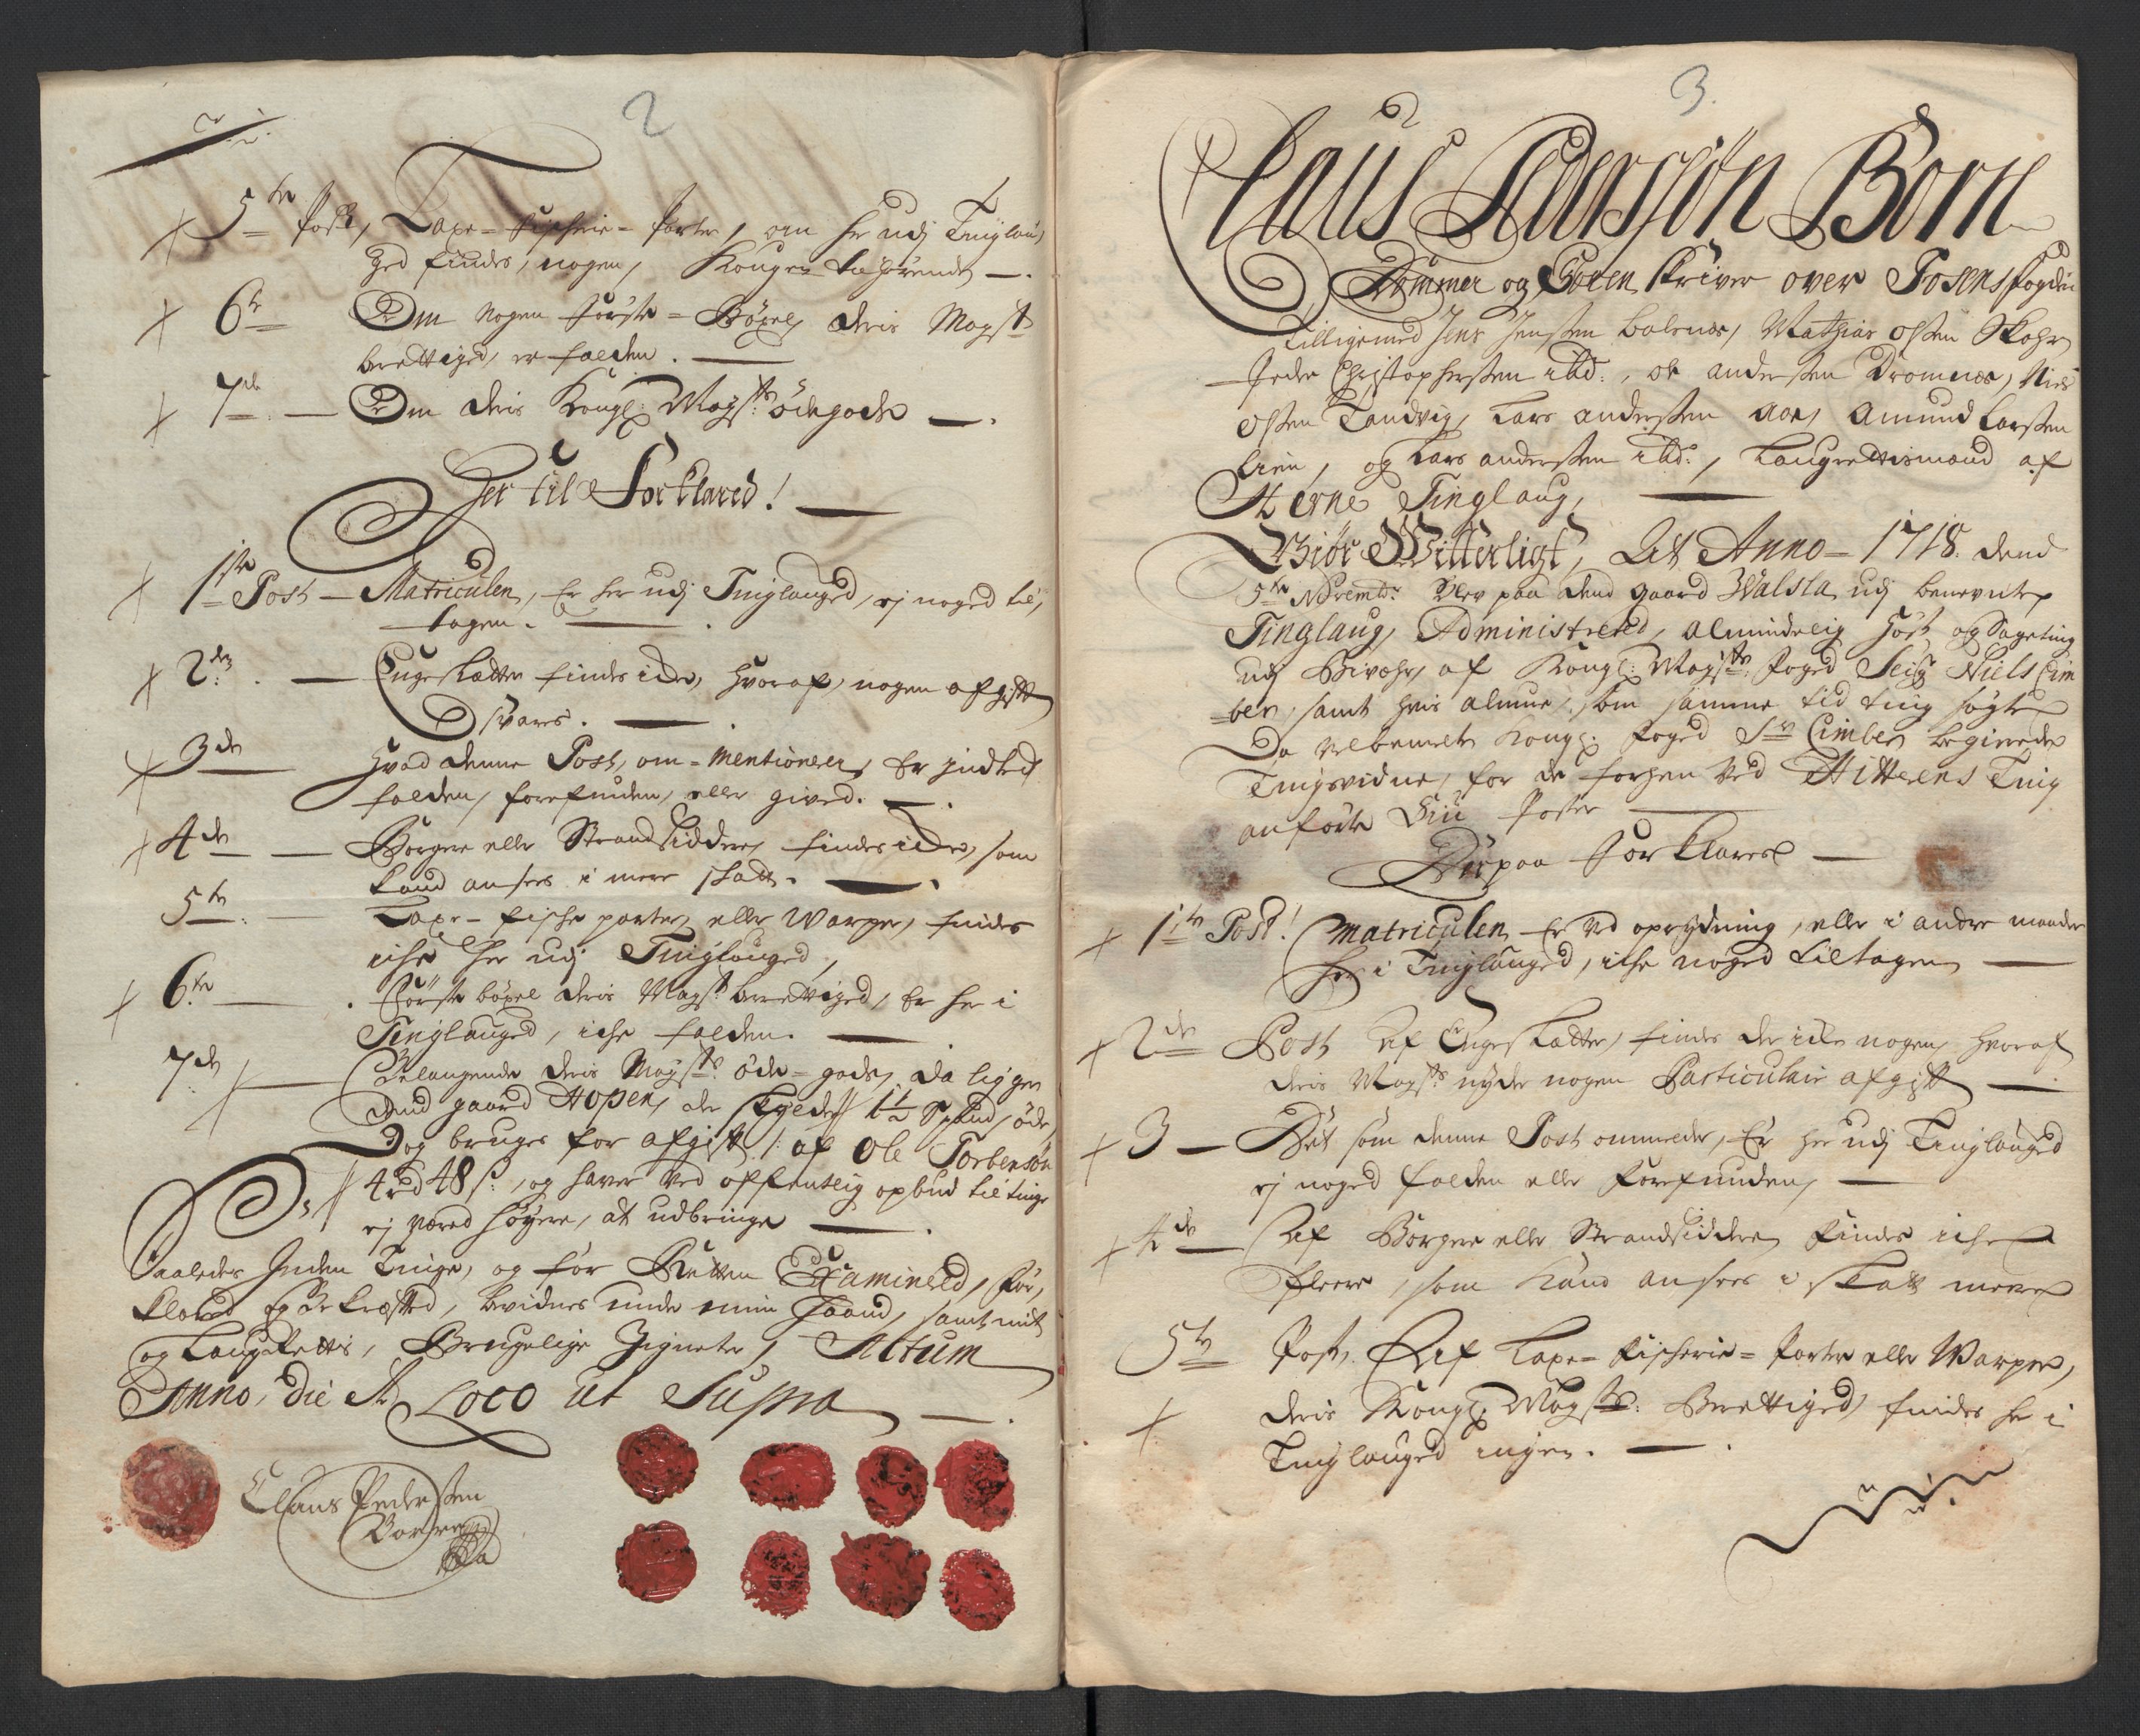 2
5te Post, Laxe-fischerie-Parter, om her udj Tinglau,
ged findes, nogen, Kongen tilhørende —.
6te Om nogen Første-Böxel, deris Mayst:
berettiged, er falden. —
7de — Om deris Kongl: Mayts: ödegods —.
Her til Forklared! —
1te Post — Matriculen, Er her udj Tinglauged, ej noged til,
tagen. —
2den — Engesletter findes icke, hvoraf, nogen afgift
svares. —
3de Hvad denne Post, om-mentionerer, Er indted
falden, forefunden, eller gived. —.
4de — Borgere eller Strandsiddere, findes icke, som
kand ansees i mere skatt. —
5te — Laxe-fische parter, eller Warper, findes
iche her udj Tinglauged,
6te — Første böxel deris Mayts berettiged, Er her i
Tinglauged, iche falden. —
7de — Belangende deris Mayts: öde-gods, da ligger
dend gaard Hopen, der skylder 1½ Spand, öde,
Dog bruges for afgift /: af Ole Torbensøn
4 rd 48 s:, og haver ved offentlig opbud til tinge
ej væred höyere, at udbringe —
Saaledes Inden Tinge, og for Retten Examinered, for,
klared og Bekræfted, bevidnes under min Haand, samt mit
og LaugRettis, Brugelige Zigneter, Actum
Anno, Die & Loco ut Supra —.
Claus Pedersen
Borre
3.
Claus Pedersøn Borre
Dommer og Soren Skriver over Fosens fogderi
Tilligemed Jens Jensen Balsnes, Mathias Olsen Skahr
Peder Christophersen ibd:, Ole Andersen Dromnes, Niels
Olsen Tandvig, Lars Andersen Aae, Amund Larsen
Lien, og Lars Andersen ibd:, Laugrettismænd af
Hterne Tinglaug, —
Giør Witterligt, At Anno-1718. dend
5te Novembr: blev paa dend gaard Walsla, udj benevnte
Tinglaug, Administrered, almindelig Höst og Sageting
udj Bivæhr, af Kongl: Mayts: Foged Seigr Niels Cim
ber, samt hvis almue, som samme tid ting søgte
Da velbemelte Kongl: Foged Sr Cimber begierede
Tingsvidne, for de forhen ved Hitterens Ting
anførte Siu Poster —
Derpaa forklares —
1te Post! Matriculen Er ved oprydning, eller i andre maader
her i Tinglauged, iche noged tiltagen —
2de Post Af Engesletter, findes der icke nogen, hvoraf
deris Mayts: nyder nogen Particulair afgift —
3 — Det som denne Post ommelder, Er her udj Tinglauged
ej noged falden eller forefunden, —
4de — Af Borgere eller Strandsiddere findes iche
fleere, som kand ansees i skatt mere
5te Post. Af Laxe-fischerie-Parter eller Warper,
deris Kongl: Mayts: Berettiged, findes her i
Tinglauged ingen. —